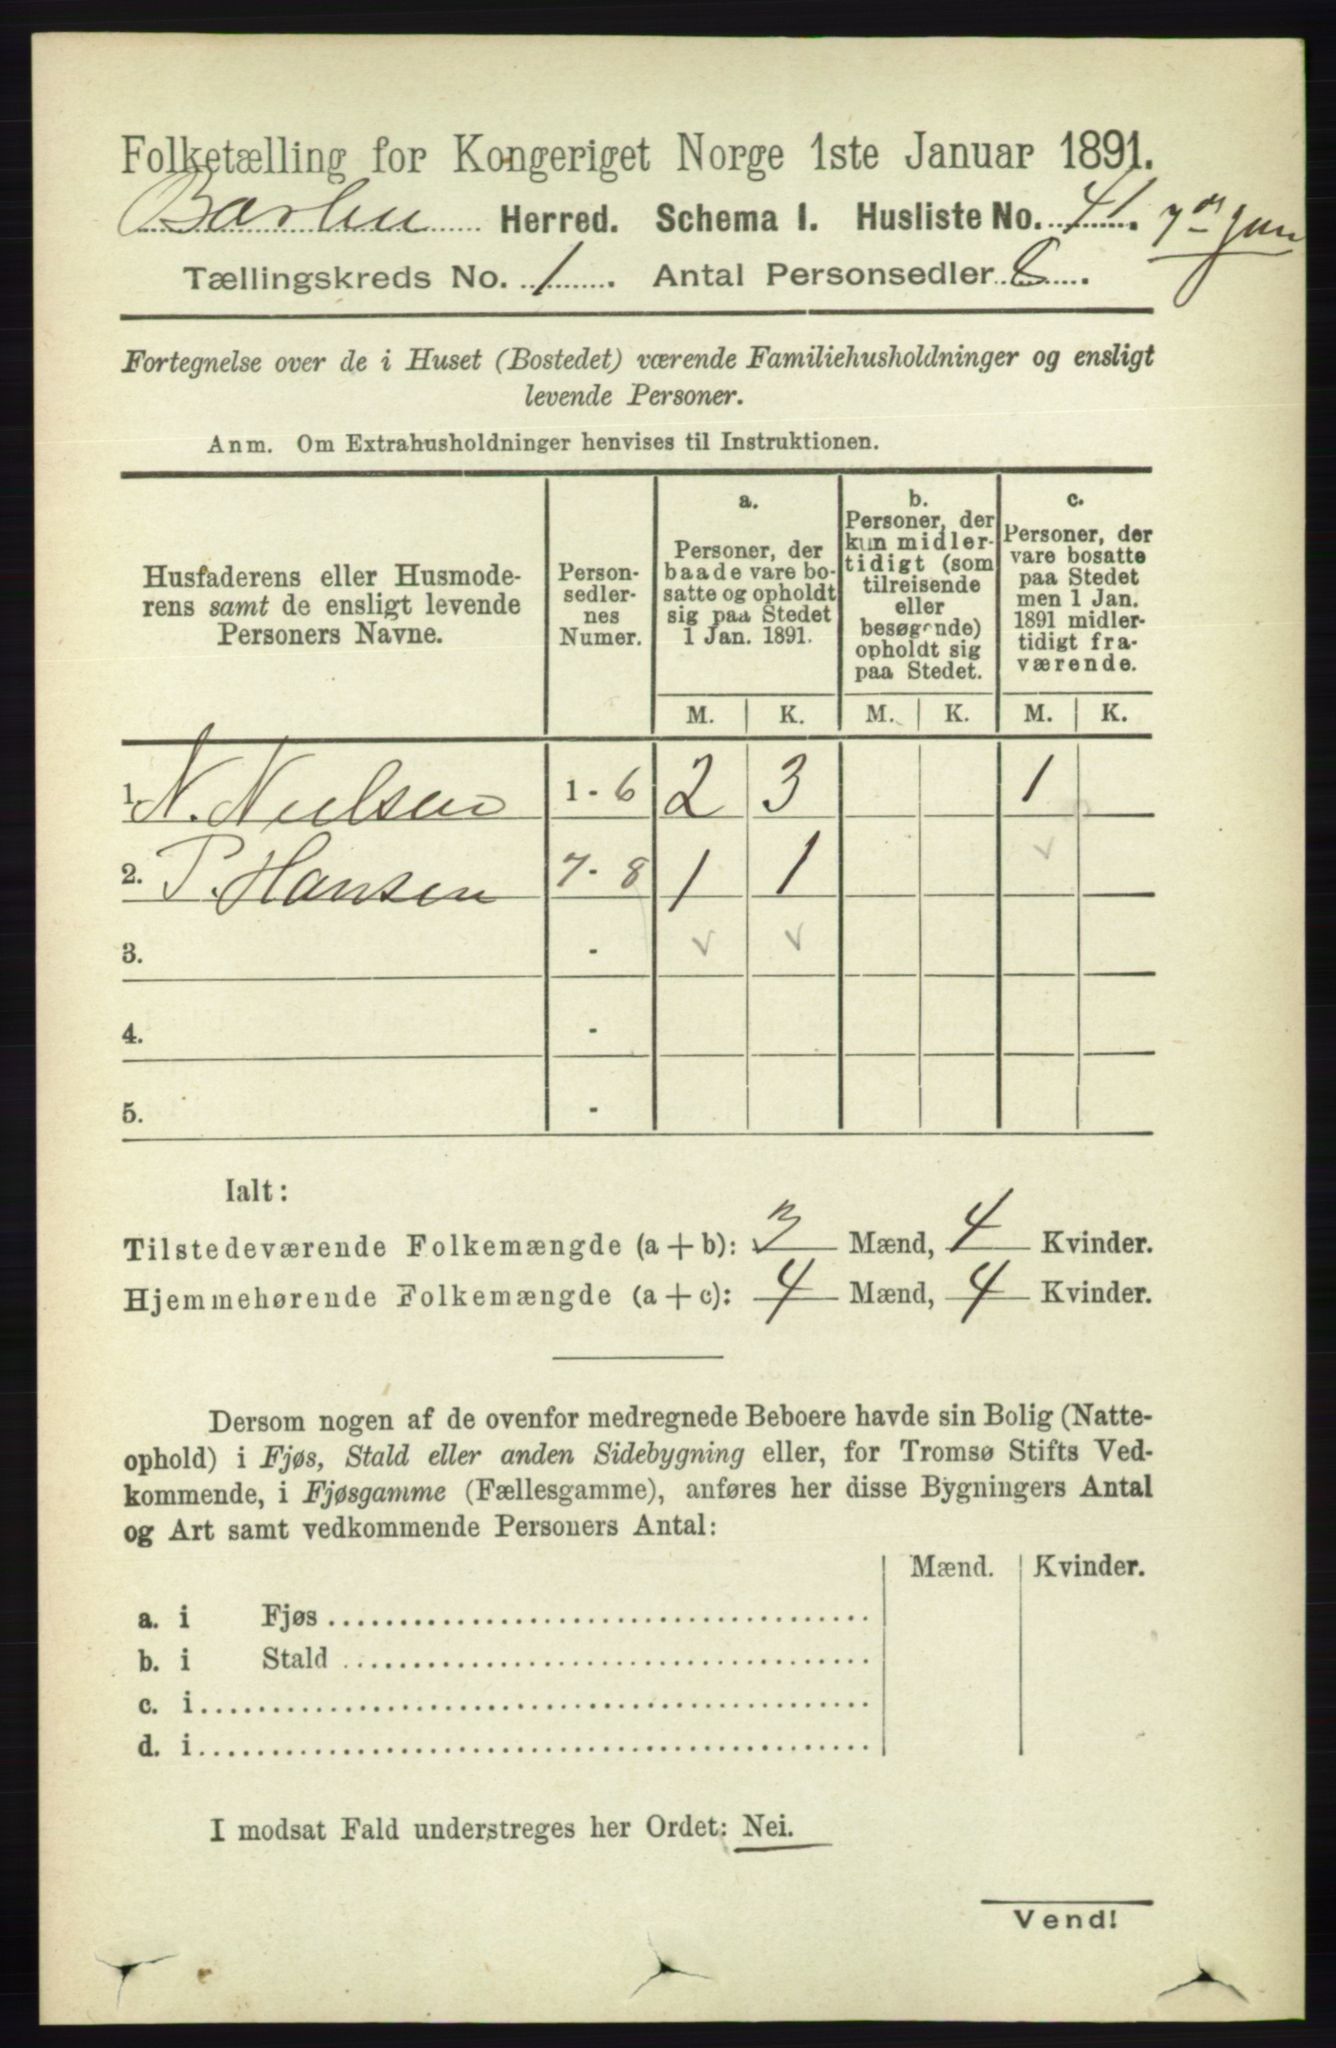 Folketælling for Kongeriget Norge 1ste Januar 1891.
Barbu Herred. Schema I. Husliste No. 41. 7de Jan
Tællingskreds No. 1. Antal Personsedler 8.
Fortegnelse over de i Huset (Bostedet) værende Familiehusholdninger og ensligt
levende Personer.
Anm. Om Extrahusholdninger henvises til Instruktionen.
Husfaderens eller Husmode-
rens samt de ensligt levende
Personers Navne.
Person-
sedler-
nes
Numer.
a.
Personer, der
baade vare bo-
satte og opholdt
sig paa Stedet
1 Jan. 1891.
b.
Personer, der
kun midler-
tidigt (som
tilreisende
eller
besøgende)
opholdt sig
paa Stedet.
c.
Personer, der
vare bosatte
paa Stedet
men 1 Jan.
1891 midler-
tidigt fra-
værende.
M. K. M. K. M. K.
1. N. Nielsen 1 - 6 2 3 1
2. P. Hansen 7 - 8 1 1
3. -
4. -
5. -
Ialt:
Tilstedeværende Folkemængde (a + b): 3 Mænd, 4 Kvinder.
Hjemmehørende Folkemængde (a + c): 4 Mænd, 4 Kvinder.
Dersom nogen af de ovenfor medregnede Beboere havde sin Bolig (Natte-
ophold) i Fjøs, Stald eller anden Sidebygning eller, for Tromsø Stifts Ved-
kommende, i Fjøsgamme (Fællesgamme), anføres her disse Bygningers Antal
og Art samt vedkommende Personers Antal:
Mænd. Kvinder.
a. i Fjøs
b. i Stald
c. i
d. i
I modsat Fald understreges her Ordet: Nei.
Vend!